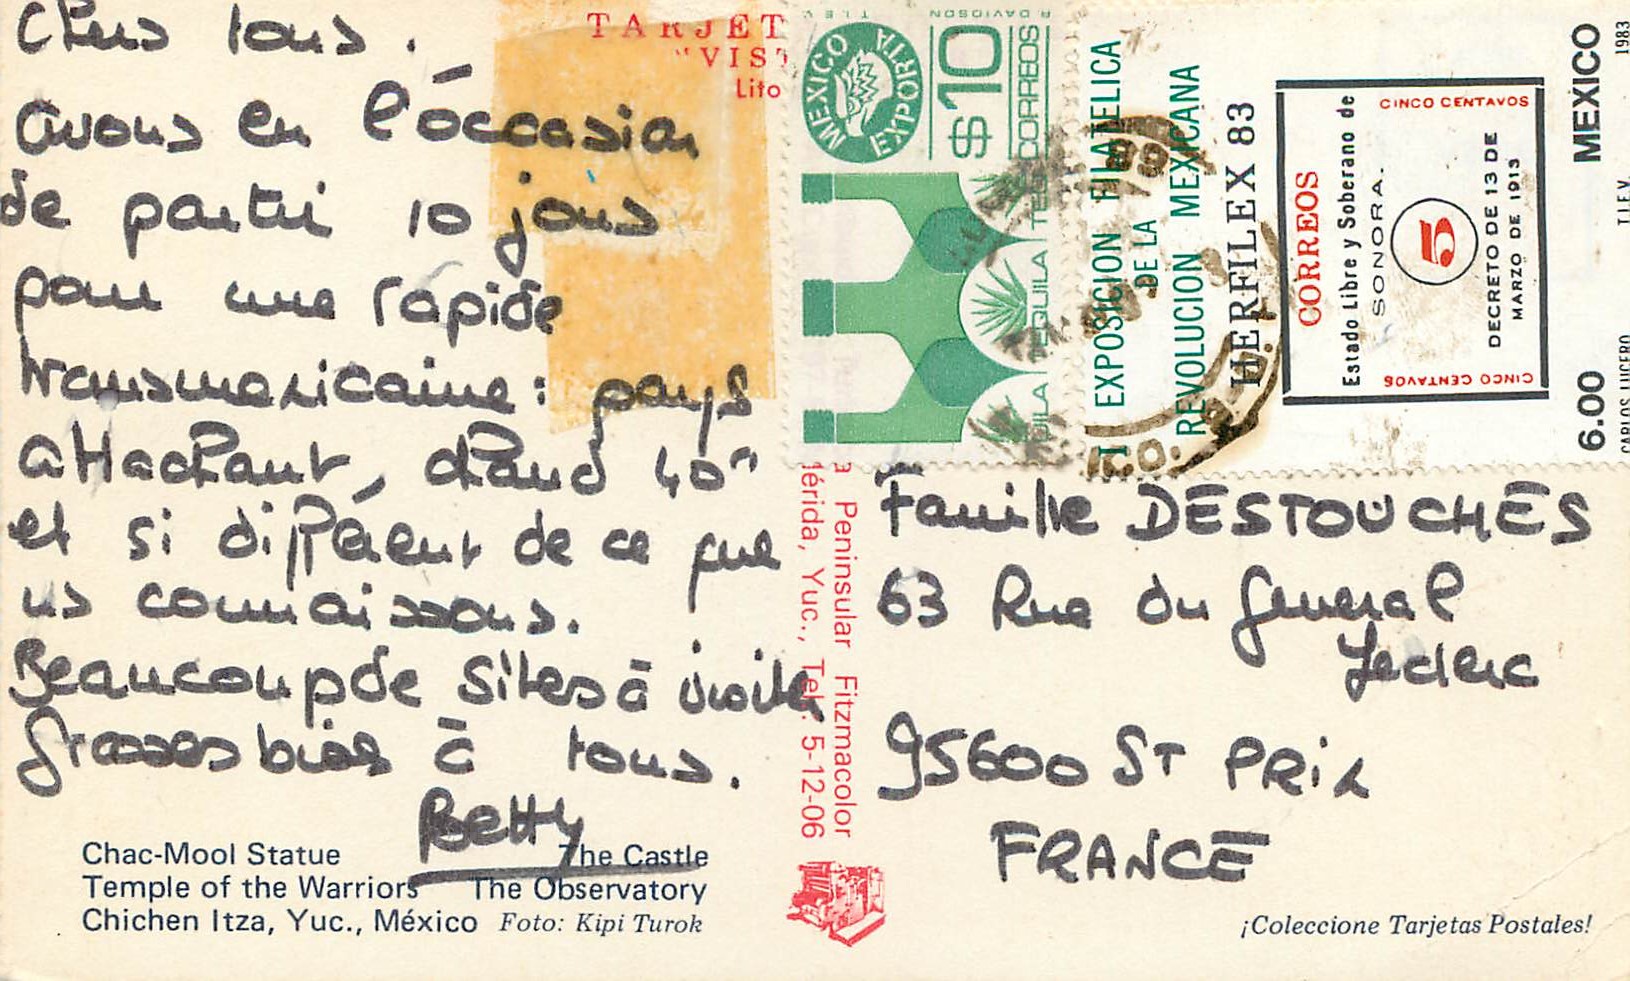 Chers tous.
Avons eu l'occasion
de partir 10 jours
pour une rapide
transmexicaine : pays
attachant, chaud 40°
et si différent de ce que
ns connaissons.
Beaucoup de sites à visiter
Grosses bises à tous.
Betty
Chac-Mool Statue The Castle
Temple of the Warriors The Observatory
Chichen Itza, Yuc., México Foto: Kipi Turok
TARJET
"VIST
Lito
a Peninsular Fitzmacolor
lérida, Yuc., Tel: 5-12-06
T.I.E.V. R DAVIDSON
MEXICO EXPORTA
$10
CORREOS
TEQUILA TEQUILA
I EXPOSICION FILATELICA
DE LA
REVOLUCION MEXICANA
HERFILEX 83
CORREOS
Estado Libre y Soberano de
SONORA.
5
DECRETO DE 13 DE
MARZO DE 1913
CINCO CENTAVOS
CINCO CENTAVOS
6.00 MEXICO
CARLOS LUCERO T.I.E.V. 1983
Famille DESTOUCHES
63 Rue du General
Leclerc
95600 ST PRIX
FRANCE
¡Coleccione Tarjetas Postales!